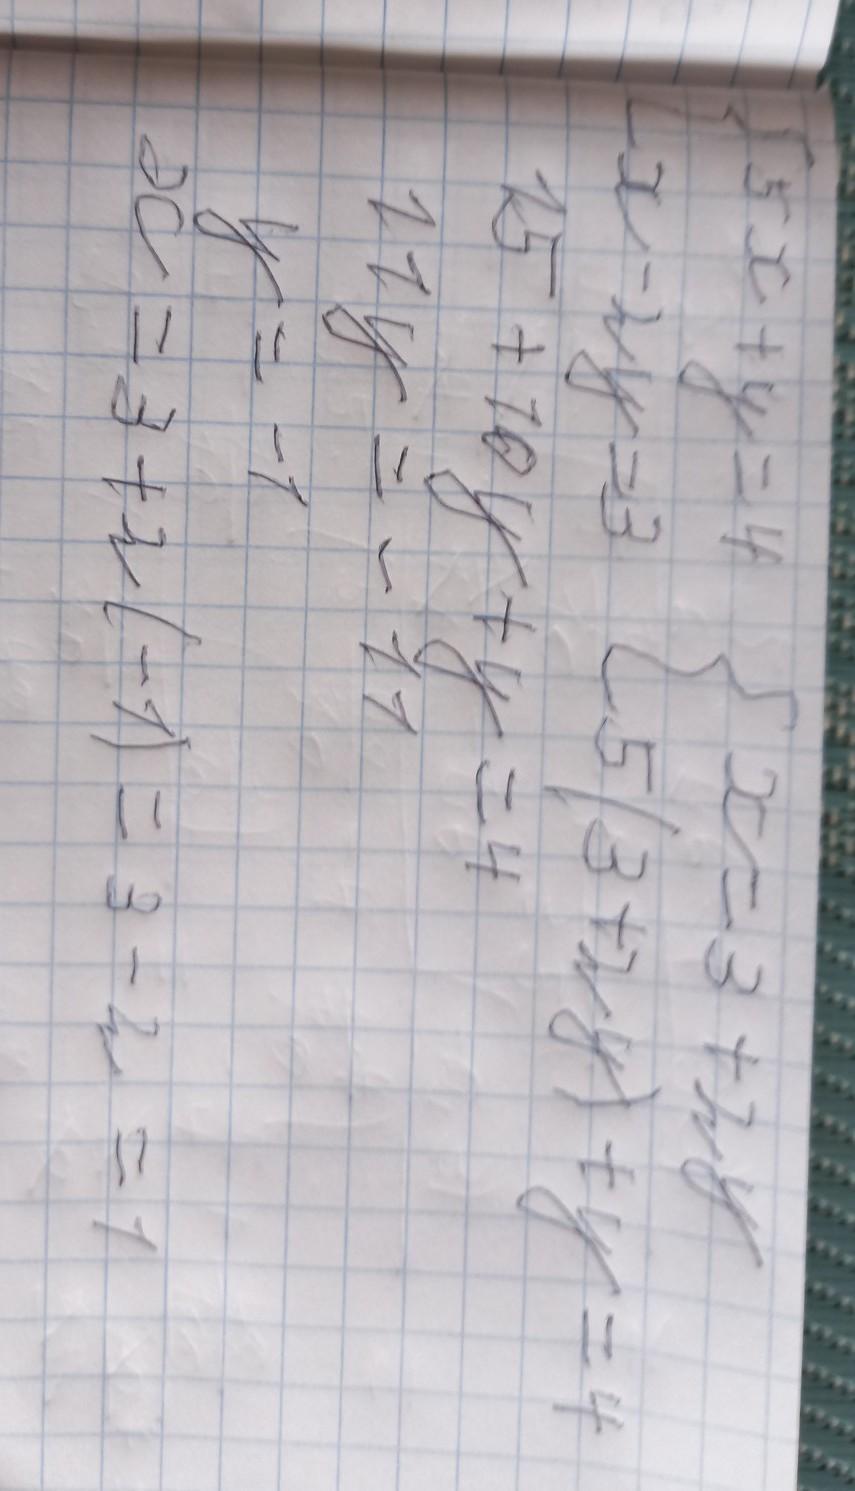 {5x+y=4 {x=3+2y
x-2y=3 5(3+2y)+y=4
15+10y+y=4
11y=-11
y=-1
x=3+2(-1)=3-2=1